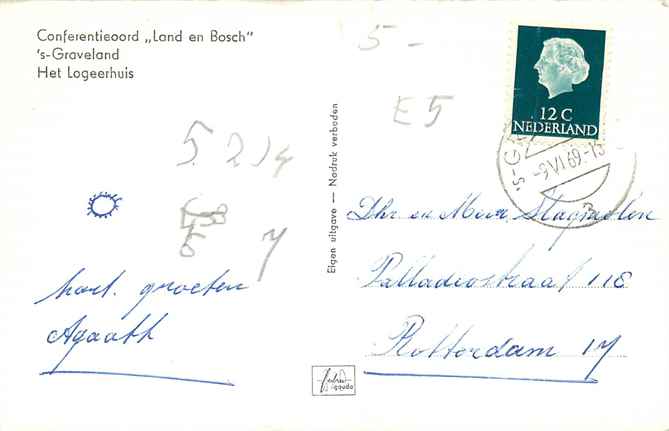 Conferentieoord „Land en Bosch"
's-Graveland
Het Logeerhuis
5 -
E 5
5. 2 14
5
7
hart. groeten
Agaath
Eigen uitgave — Nadruk verboden
12 C
NEDERLAND
-9.VI.69-15
3
Dhr en Mevr
Palladiostraat 11E
Rotterdam 14
Gouda